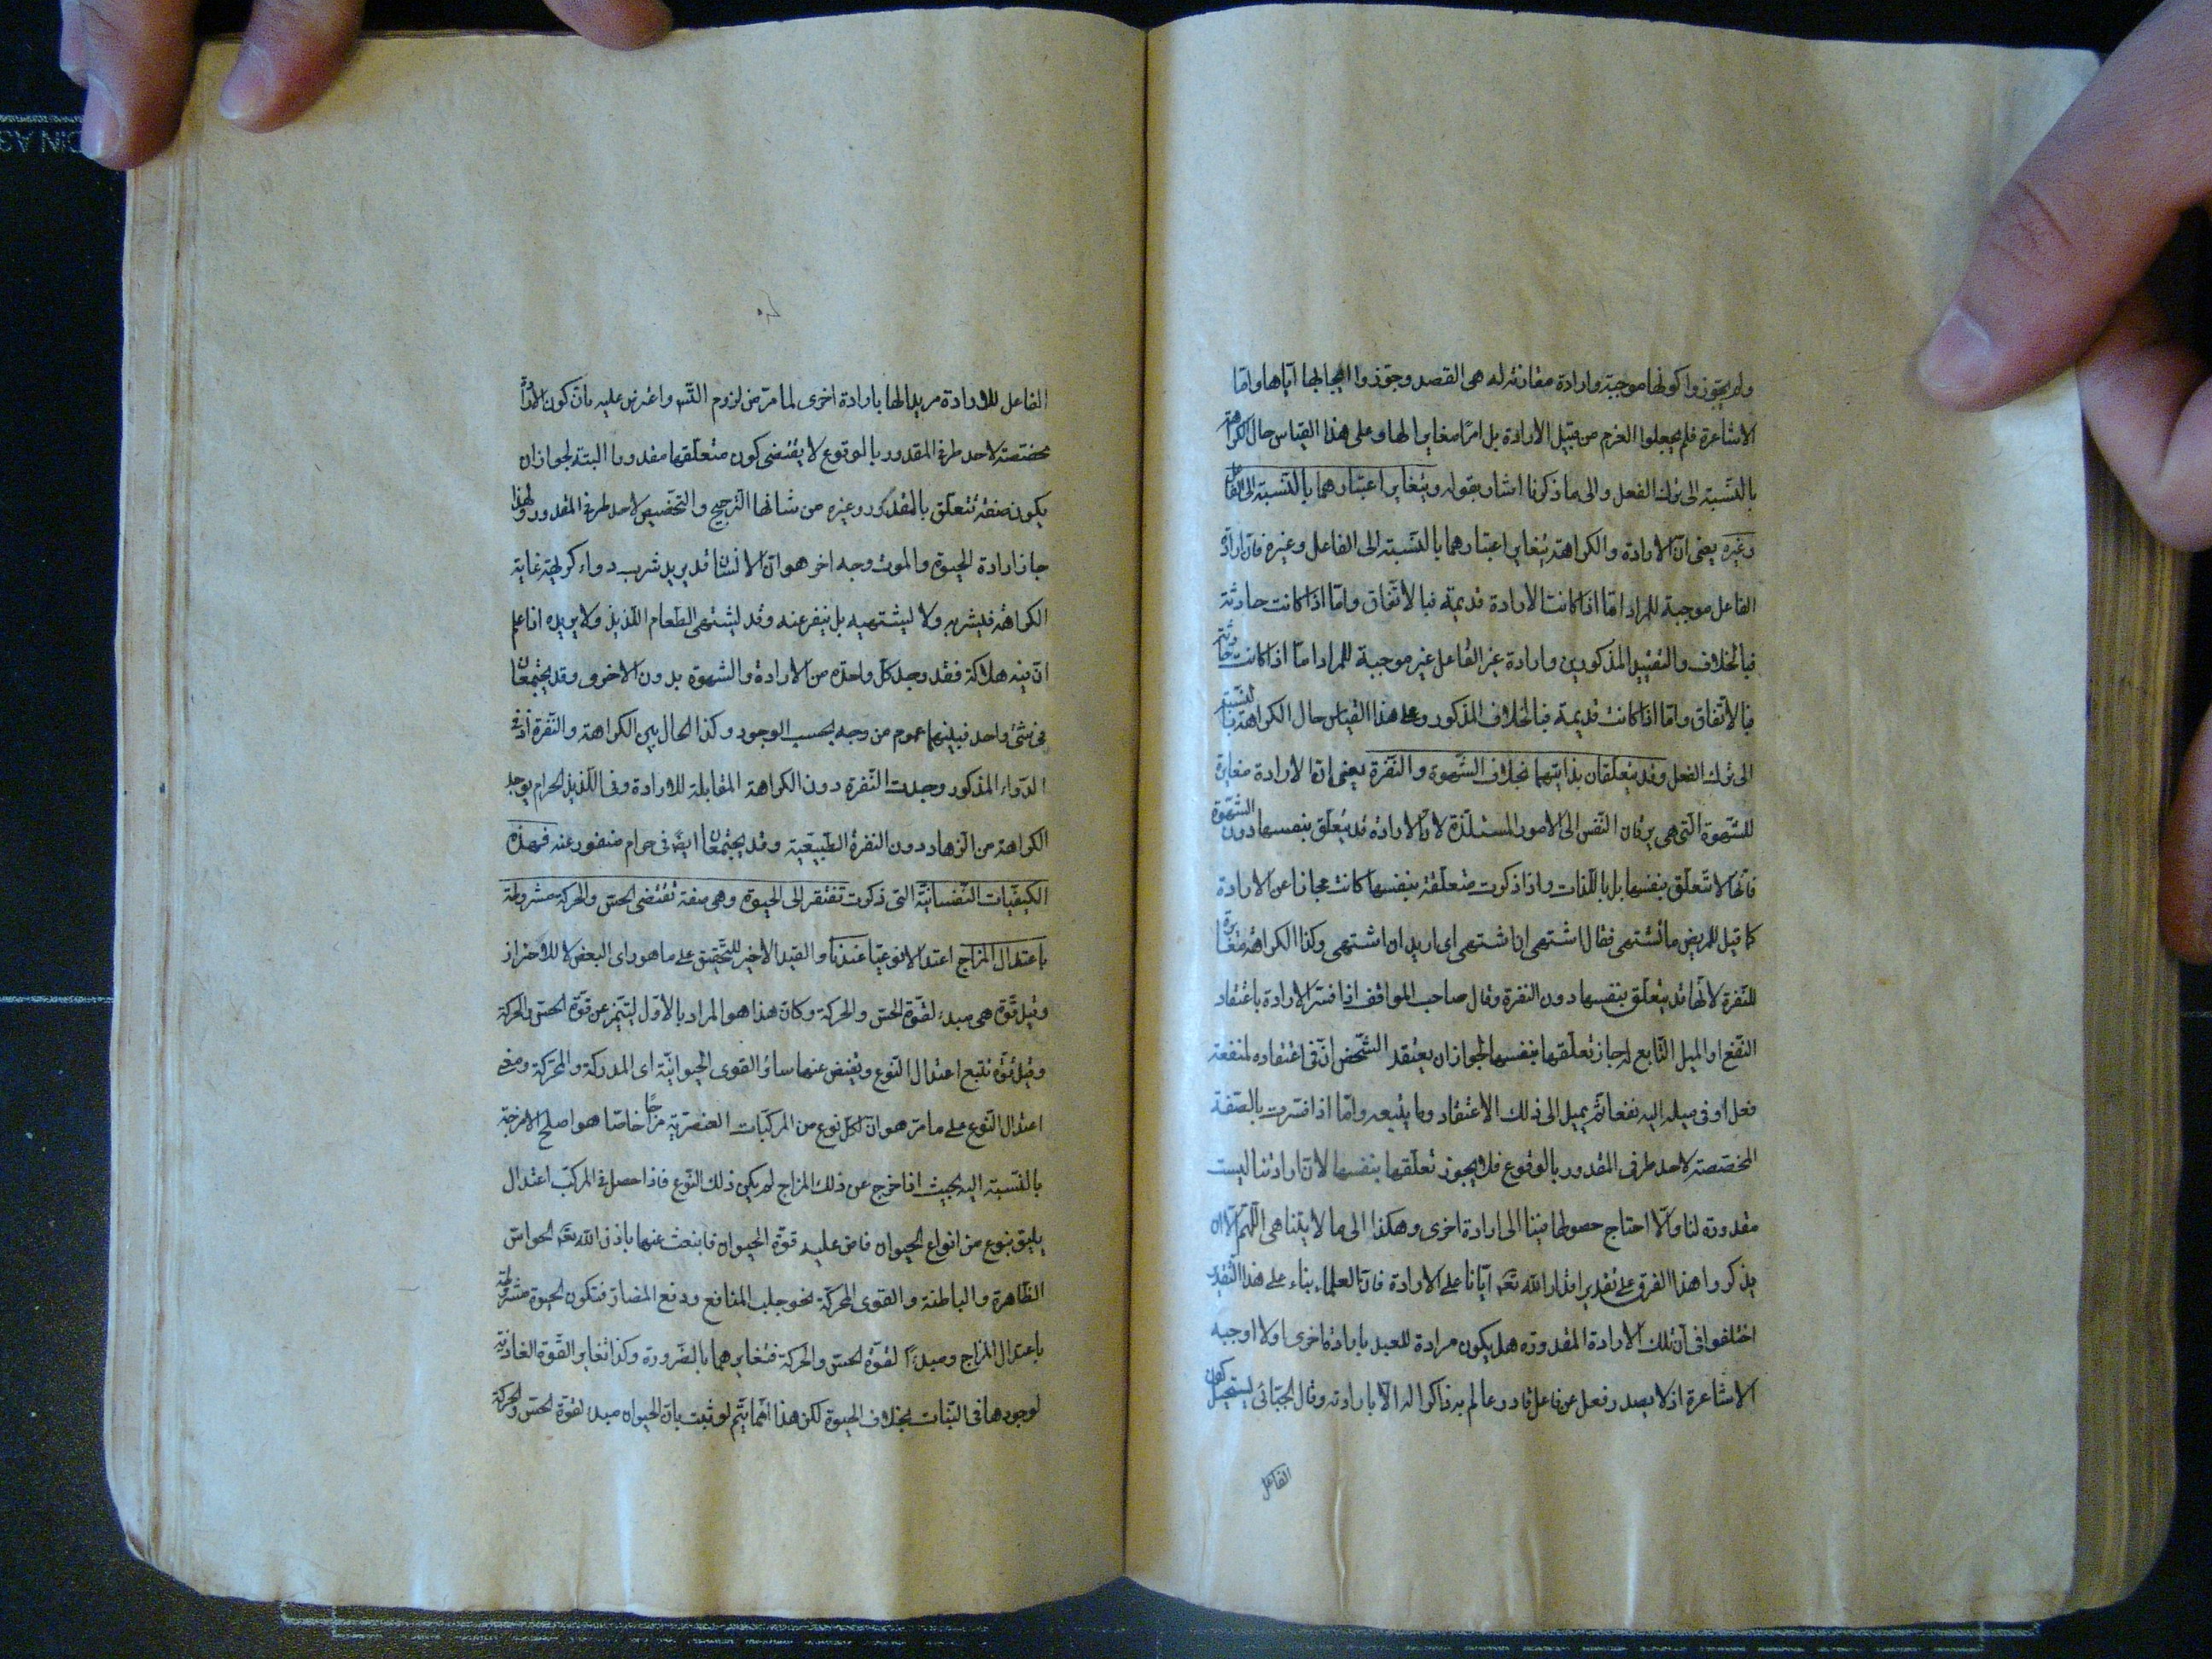 ولم يجوزوا كونها موجبة وارادة مقارنة له هى القصد وجوزوا ايجابها اياها واما
الاشاعرة فلم يجعلوا العزم من قبيل الارادة بل امرًا مغايرا لها وعلى هذا القياس حال الكراهة
بالنسبة الى ترك الفعل والى ما ذكرنا اشار بقوله ويتغاير اعتبارهما بالنسبة الى الفاعل
وغيره يعنى ان الارادة والكراهة يتغاير اعتبارهما بالنسبة الى الفاعل وغيره فان ارادة
الفاعل موجبة للمراد اما اذا كانت الارادة قديمة فبالاتفاق واما اذا كانت حادثة
فبالخلاف والتقييد المذكورين وارادة غير الفاعل غير موجبة للمراد اما اذا كانت حادثة
فبالاتفاق واما اذا كانت قديمة فبالخلاف المذكور وعلى هذا القياس حال الكراهة بالنسبة
الى ترك الفعل وقد يتعلقان بذاتيهما بخلاف الشهوة والنفرة يعنى ان الارادة مغايرة
للشهوة التى هى توقان النفس الى الامور المستلذة لان الارادة قد يتعلق بنفسها دون الشهوة
فانها لا تتعلق بنفسها بل باللذات واذا ذكرت متعلقة بنفسها كانت مجازا عن الارادة
كما قيل للمريض ما تشتهى فقال اشتهى ان اشتهى اى اريد ان اشتهى وكذا الكراهة مغايرة
للنفرة لانها قد يتعلق بنفسها دون النفرة وقال صاحب المواقف اذا فسر الارادة باعتقاد
النفع او الميل التابع له جاز تعلقها بنفسها لجواز ان يعتقد الشخص ان فى اعتقاده لمنفعة
فعل او فى ميله اليه نفعا ثم يميل الى ذلك الاعتقاد وما يتبعه واما اذا فسرت بالصفة
المخصصة لاحد طرفى المقدور بالوقوع فلا يجوز تعلقها بنفسها لان ارادتنا ليست
مقدورة لنا والا احتاج حصولها فينا الى ارادة اخرى وهكذا الى ما لا يتناهى اللهم الا ان
يذكروا هذا الفرق على تقدير اقدار الله تعه ايانا على الارادة فان العلماء بناء على هذا التقدير
اختلفوا فى ان تلك الارادة المقدورة هل يكون مرادة للعبد بارادة اخرى اولا اوجبه
الاشاعرة اذ لا يصدر فعل عن فاعل قادر عالم به ذاكرا له الا بارادته وقال الجبائى يستحيل كون
الفاعل
الفاعل للارادة مريدا لها بارادة اخرى لما مر من لزوم التسه واعترض عليه بان كون الارادة
مخصصة لاحد طرفى المقدور بالوقوع لا يقتضى كون متعلقها مقدورا البتة لجواز ان
يكون صفة تتعلق بالمقدور وغيره من شانها الترجيح والتخصيص لاحد طرفى المقدور ولهذا
جاز ارادة الحيوة والموت وجه اخر هو ان الانسان قد يريد شرب دواء كريهة غاية
الكراهة فيشربه ولا يشتهيه بل ينفر عنه وقد يشتهى الطعام اللذيذ ولا يريده اذا علم
ان فيه هلاكه فقد وجد كل واحدة من الارادة والشهوة بدون الاخرى وقد يجتمعان
فى شئ واحد فبينهما عموم من وجه بحسب الوجود وكذا الحال بين الكراهة والنفرة اذ فى
الدواء المذكور وجدت النفرة دون الكراهة المقابلة للارادة وفى اللذيذ الحرام يوجد
الكراهة من الزهاد دون النفرة الطبيعية وقد يجتمعان ايضا فى حرام منفور عنه فهذه
الكيفيات النفسانية التى ذكرت تفتقر الى الحيوة وهى صفة تقتضى الحس والحركة مشروطة
باعتدال المزاج اعتدالا نوعيا عندنا والقيد الاخير للتحقيق على ما هو راى البعض لا للاحتراز
وقيل قوة هى مبدء لقوة الحس والحركة وكان هذا هو المراد بالاول ليتميز عن قوة الحس والحركة
وقيل قوة تتبع اعتدال النوع ويفيض عنها سائر القوى الحيوانية اى المدركة والمحركة ومعنى
اعتدال النوع على ما مر هو ان لكل نوع من المركبات العنصرية مزاجا خاصا هو اصلح الامزجة
بالنسبة اليه بحيث اذا خرج عن ذلك المزاج لم يكن ذلك النوع فاذا حصل فى المركب اعتدال
يليق بنوع من انواع الحيوان فاض عليه قوة الحيوان فانبعث عنها باذن الله تعه الحواس
الظاهرة والباطنة والقوى المحركة نحو جلب المنافع ودفع المضار فتكون الحيوة مشروطة
باعتدال المزاج ومبدءًا لقوة الحس والحركة فتغايرهما بالضرورة وكذا تغاير القوة الغاذية
لوجودها فى النبات بخلاف الحيوة لكن هذا انما يتم لو ثبت بان الحيوان مبدء لقوة الحس والحركة